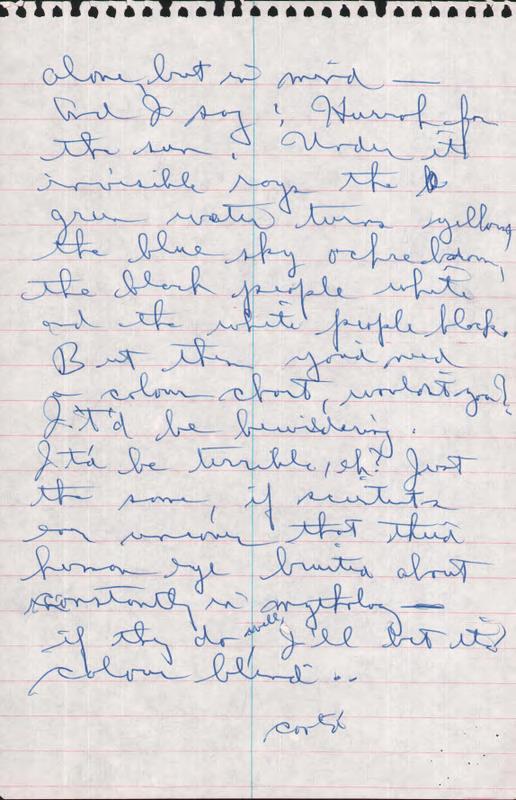 alone, but in mind —
And I say: Hurrah for
the sun. Under its
invisible rays the
green water turns yellow,
the blue sky ochre brown,
the black people white
and the white people black.
But then you'd need
a colour chart, wouldn't you?
It'd be bewildering.
It'd be terrible, eh? Just
the same, if scientists
ever uncover that third
human eye bruited about
constantly in mythology —
if they do, well, I'll bet it's
colour blind..
cont'd